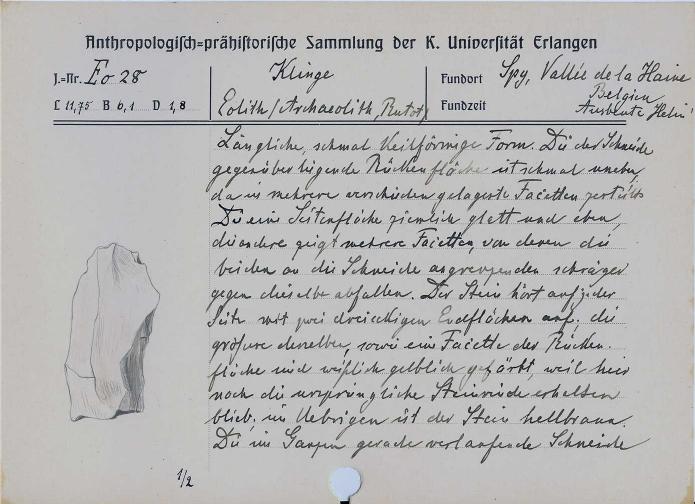 Anthropologisch=prähistorische Sammlung der K. Universität Erlangen
J.=Nr. Eo 28
Klinge
Fundort Spy, Vallée de la Haine
Belgien
L 11,75 B 6,1 D 1,8
Eolith/Archaeolith, Rutot
Fundzeit Ausbeute
Längliche, schmal keilförmige Form. Die der Schneide
gegenüber liegende Rückenfläche ist schmal uneben,
da in mehrere verschieden gelagerte Facetten zerteilt.
Die eine Seitenfläche ziemlich glatt und eben,
die andere zeigt mehrere Facetten, von denen die
beiden an die Schneide angrenzenden schräger
gegen dieselbe abfallen. Der Stein hört auf jeder
Seite mit zwei dreieckigen Endflächen auf; die
größere derselben, sowie eine Facette der Rücken-
fläche sind weißlich gelblich gefärbt, weil hier
noch die ursprüngliche Steinrinde erhalten
blieb; im Uebrigen ist der Stein hellbraun.
Die im Ganzen gerade verlaufende Schneide
1/2